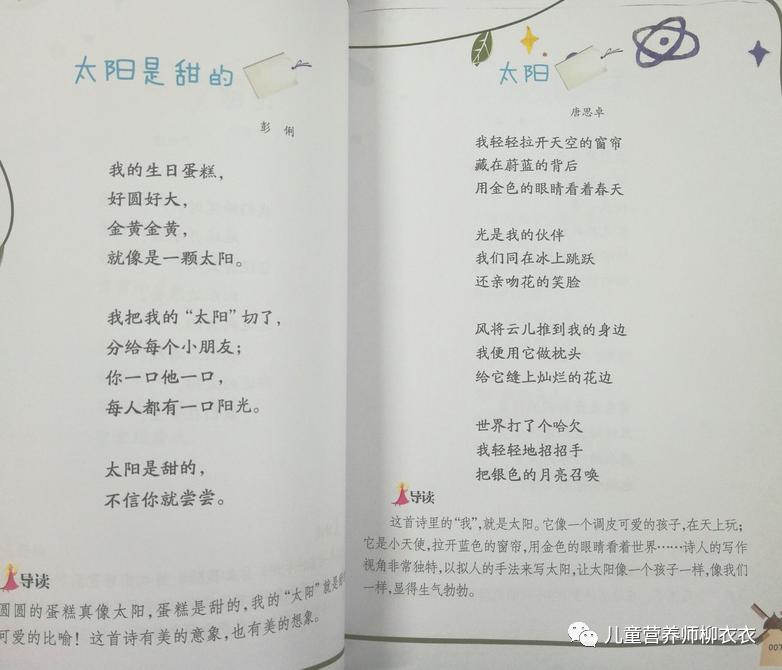 太阳是甜的
彭 俐
我的生日蛋糕，
好圆好大，
金黄金黄，
就像是一颗太阳。
我把我的“太阳”切了，
分给每个小朋友；
你一口他一口，
每人都有一口阳光。
太阳是甜的，
不信你就尝尝。
导读
圆圆的蛋糕真像太阳，蛋糕是甜的，我的“太阳”就是
可爱的比喻！这首诗有美的意象，也有美的想象。
太阳
唐思卓
我轻轻拉开天空的窗帘
藏在蔚蓝的背后
用金色的眼睛看着春天
光是我的伙伴
我们同在冰上跳跃
还亲吻花的笑脸
风将云儿推到我的身边
我便用它做枕头
给它缝上灿烂的花边
世界打了个哈欠
我轻轻地招招手
把银色的月亮召唤
导读
这首诗里的“我”，就是太阳。它像一个调皮可爱的孩子，在天上玩；
它是小天使，拉开蓝色的窗帘，用金色的眼睛看着世界……诗人的写作
视角非常独特，以拟人的手法来写太阳，让太阳像一个孩子一样，像我们
一样，显得生气勃勃。
儿童营养师柳衣衣